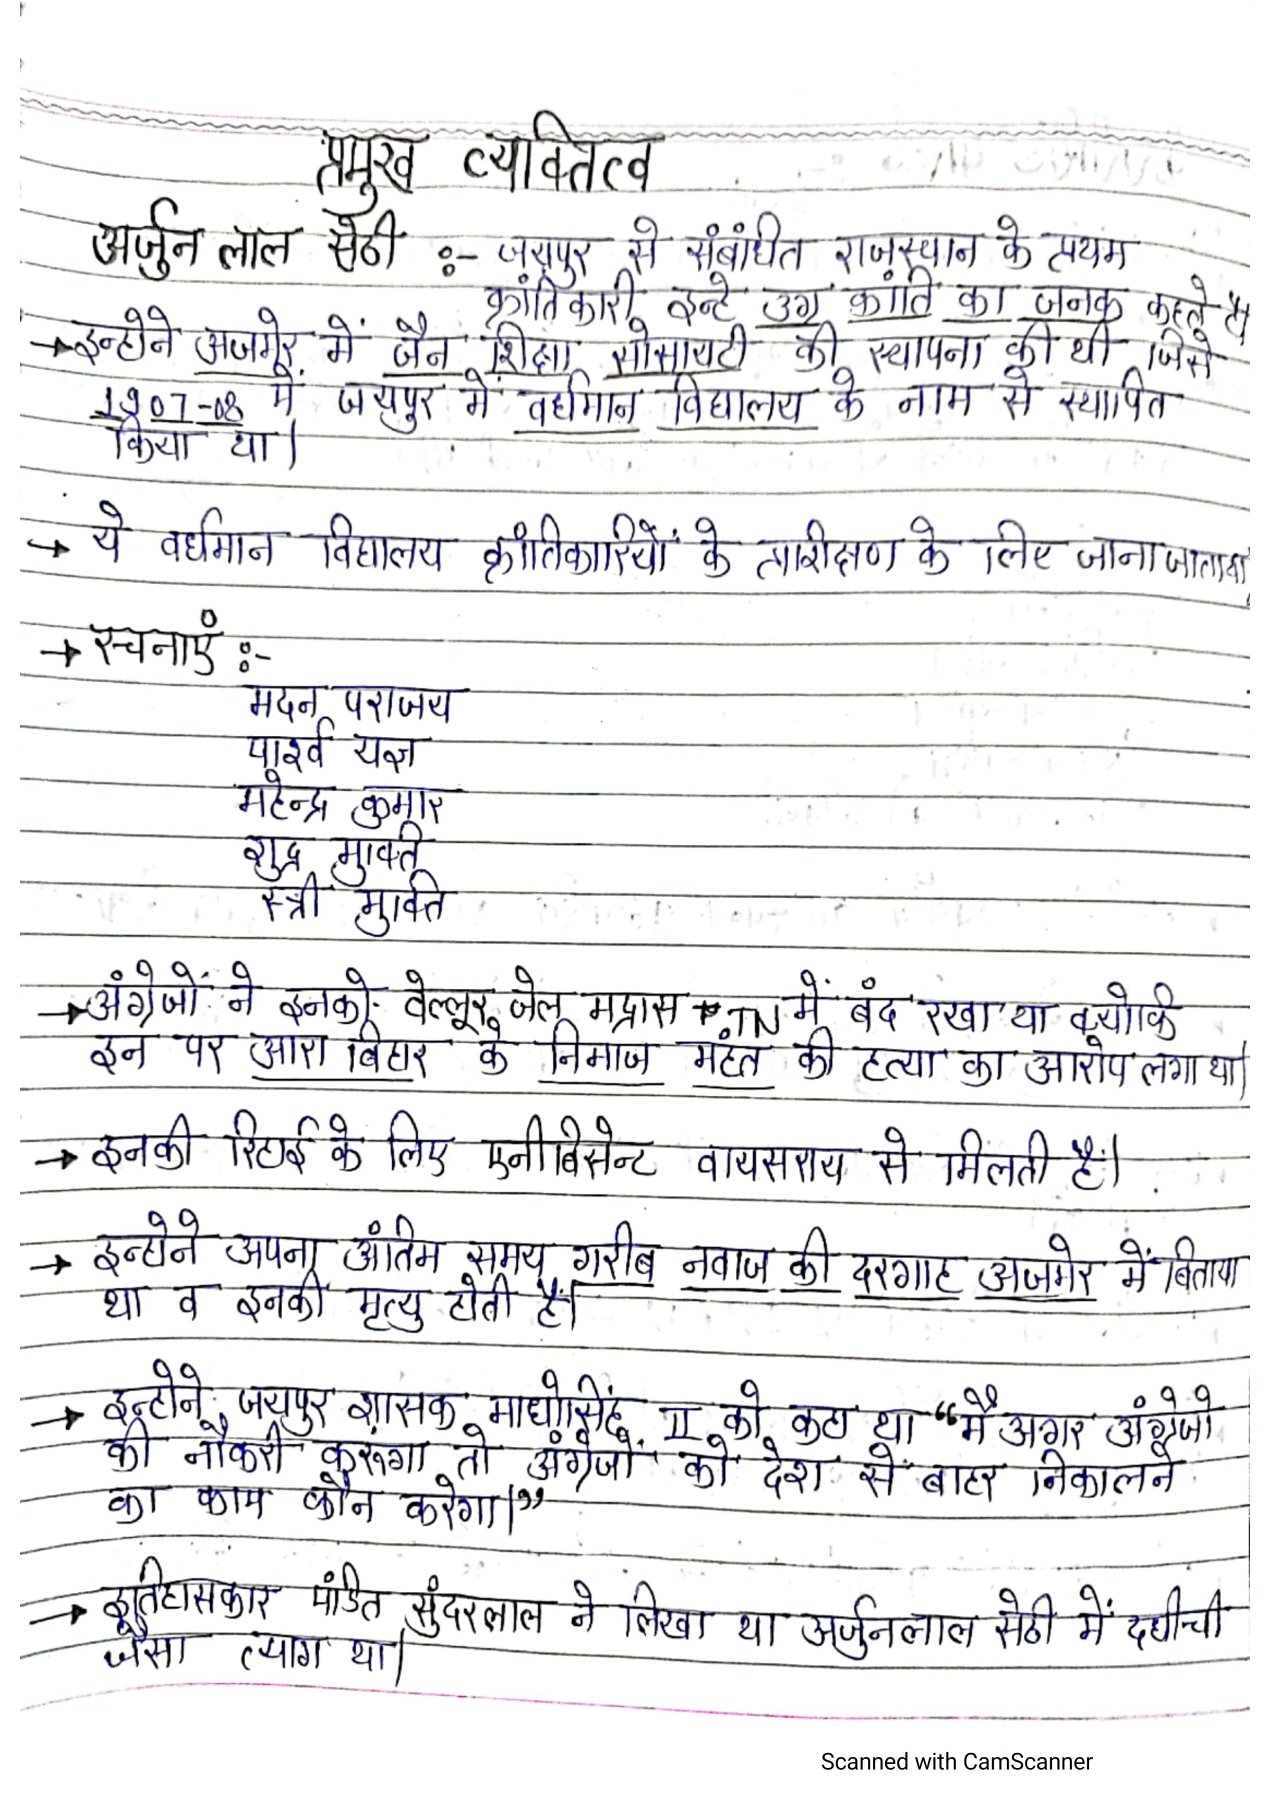 प्रमुख व्यक्तित्व
अर्जुन लाल सेठी :- जयपुर से संबंधित राजस्थान के प्रथम
क्रांतिकारी इन्हे उग्र क्रांति का जनक कहते है।
→ इन्होने अजमेर में जैन शिक्षा सोसायटी की स्थापना की थी जिसे
1907-08 में जयपुर में वर्धमान विद्यालय के नाम से स्थापित
किया था।
→ ये वर्धमान विद्यालय क्रांतिकारियों के प्रशिक्षण के लिए जाना जाता था
→ रचनाएं :-
मदन पराजय
पार्श्व यज्ञ
महेन्द्र कुमार
शुद्र मुक्ति
स्त्री मुक्ति
→ अंग्रेजों ने इनको वेल्लूर जेल मद्रास TN में बंद रखा था क्योकि
इन पर आरा बिहार के निमाज महंत की हत्या का आरोप लगा था।
→ इनकी रिहाई के लिए एनीबिसेन्ट वायसराय से मिलती है।
→ इन्होने अपना अंतिम समय गरीब नवाज की दरगाह अजमेर में बिताया
था व इनकी मृत्यु होती है।
→ इन्होने जयपुर शासक माधोसिंह II को कहा था “मै अगर अंग्रेजो
की नौकरी करूंगा तो अंग्रेजों को देश से बाहर निकालने
का काम कौन करेगा।”
→ इतिहासकार पंडित सुंदरलाल ने लिखा था अर्जुनलाल सेठी में दधीची
जैसा त्याग था।
Scanned with CamScanner